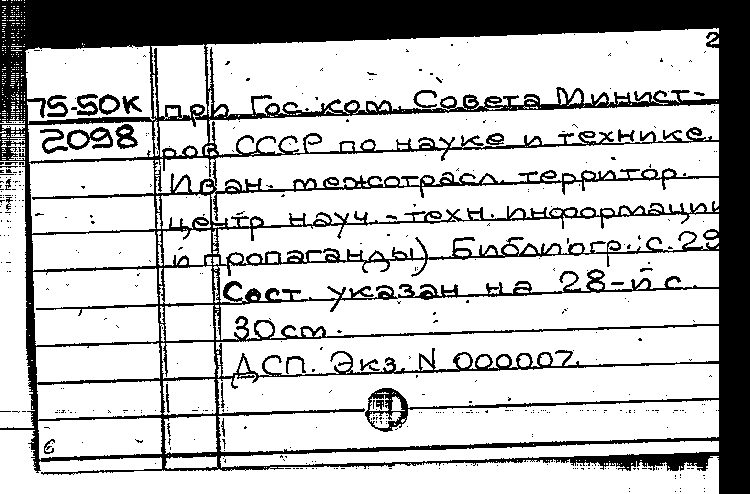 2
75-50К при Гос. ком. Совета Минист-
2098 ров СССР по науке и технике.
Иван. межотрасл. территор.
центр науч.-техн. информации
и пропаганды) Библиогр.: с. 29
Сост. указан на 28-й с.
30 см.
ДСП. Экз. N 000007.
6